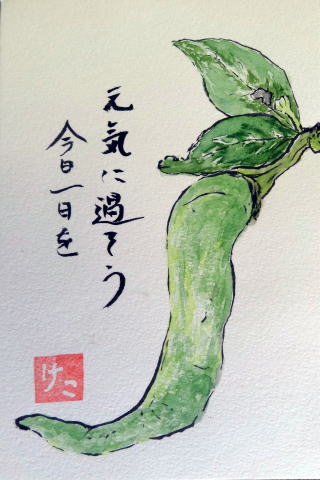 元気に過そう
今日一日を
けこ